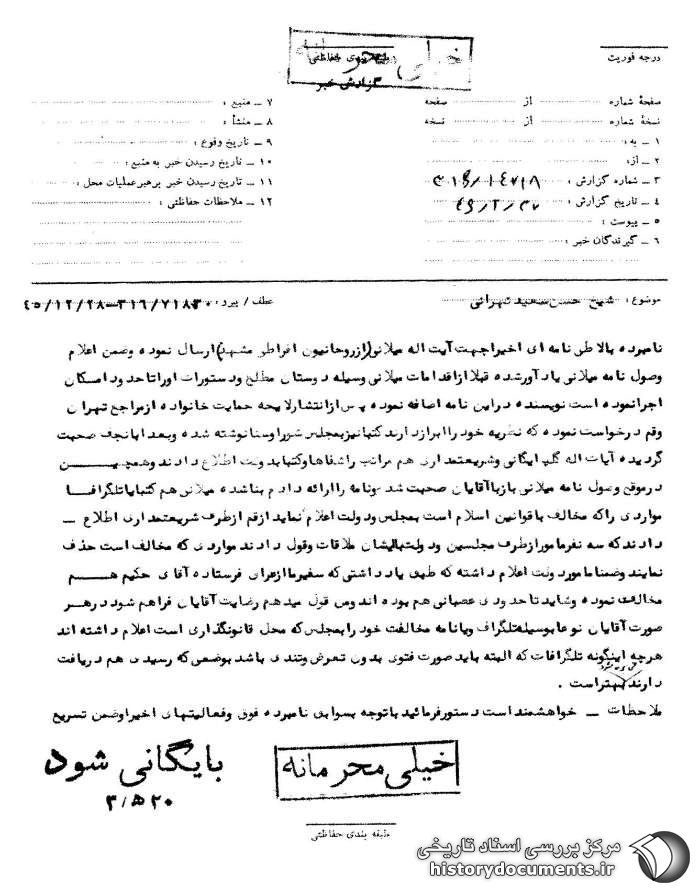 خیلی محرمانه
گزارش خبر
درجه فوریت
صفحهٔ شماره از صفحه
نسخهٔ شماره از نسخه
۱ ـ به :
۲ ـ از:
۳ ـ شماره گزارش :
۴ ـ تاریخ گزارش :
۵ ـ پیوست :
۶ ـ گیرندگان خبر :
۷ ـ منبع :
۸ ـ منشأ :
۹ ـ تاریخ وقوع :
۱۰ ـ تاریخ رسیدن خبر به منبع :
۱۱ ـ تاریخ رسیدن خبر برهبر عملیات محل :
۱۲ ـ ملاحظات حفاظتی :
موضوع : شیخ حسن سعید تهرانی
عطف / پیرو : ۳۱۶/۷۱۸۳۰ـ۴۵/۱۲/۲۸
نامبرده بالا طی نامه ای اخیرا جهت آیت اله میلانی (از روحانیون افراطی مشهد) ارسال نموده وضمن اعلام
وصول نامه میلانی یادآور شده قبلا از اقدامات میلانی وسیله دوستان مطلع ودستورات او را تا حدود امکان
اجرا نموده است نویسنده در این نامه اضافه نموده پس از انتشار لایحه حمایت خانواده از مراجع تهران
وقم درخواست نموده که نظریه خود را ابراز دارند کتبا نیز بمجلس شورا وسنا نوشته شده وبعدا بانجف صحبت
گردیده آیات اله گلپایگانی وشریعتمداری هم مراتب را شفاها وکتبا بدولت اطلاع دادند وهمچنین
در موقع وصول نامه میلانی باز با آقایان صحبت شد ونامه را ارائه دادم بنا شده میلانی هم کتبا یا تلگرافا
مواردی را که مخالف با قوانین اسلام است بمجلس ودولت اعلام نماید از قم از طرف شریعتمداری اطلاع ـ
دادند که سه نفر مامور از طرف مجلسین ودولت بایشان ملاقات وقول دادند مواردی که مخالف است حذف
نمایند وضمنا مامور دولت اعلام داشته که طبق یادداشتی که سفیر ما از عراق فرستاده آقای حکیم هم
مخالفت نموده وشاید تا حدودی عصبانی هم بوده اند ومن قول میدهم رضایت آقایان فراهم شود در هر
صورت آقایان نوعا بوسیله تلگراف ویا نامه مخالفت خود را بمجلس که محل قانونگذاری است اعلام داشته اند
هرچه اینگونه تلگرافات که البته باید صورت فتوی بدون تعرض وتندی باشد بوضعی که رسیدی هم دریافت
دارند بهتر است .
ملاحظات ـ خواهشمند است دستور فرمائید با توجه بسوابق نامبرده فوق وفعالیتهای اخیر او ضمن تسریع
خیلی محرمانه
بایگانی شود
طبقه بندی حفاظتی
مرکز بررسی اسناد تاریخی
historydocuments.ir